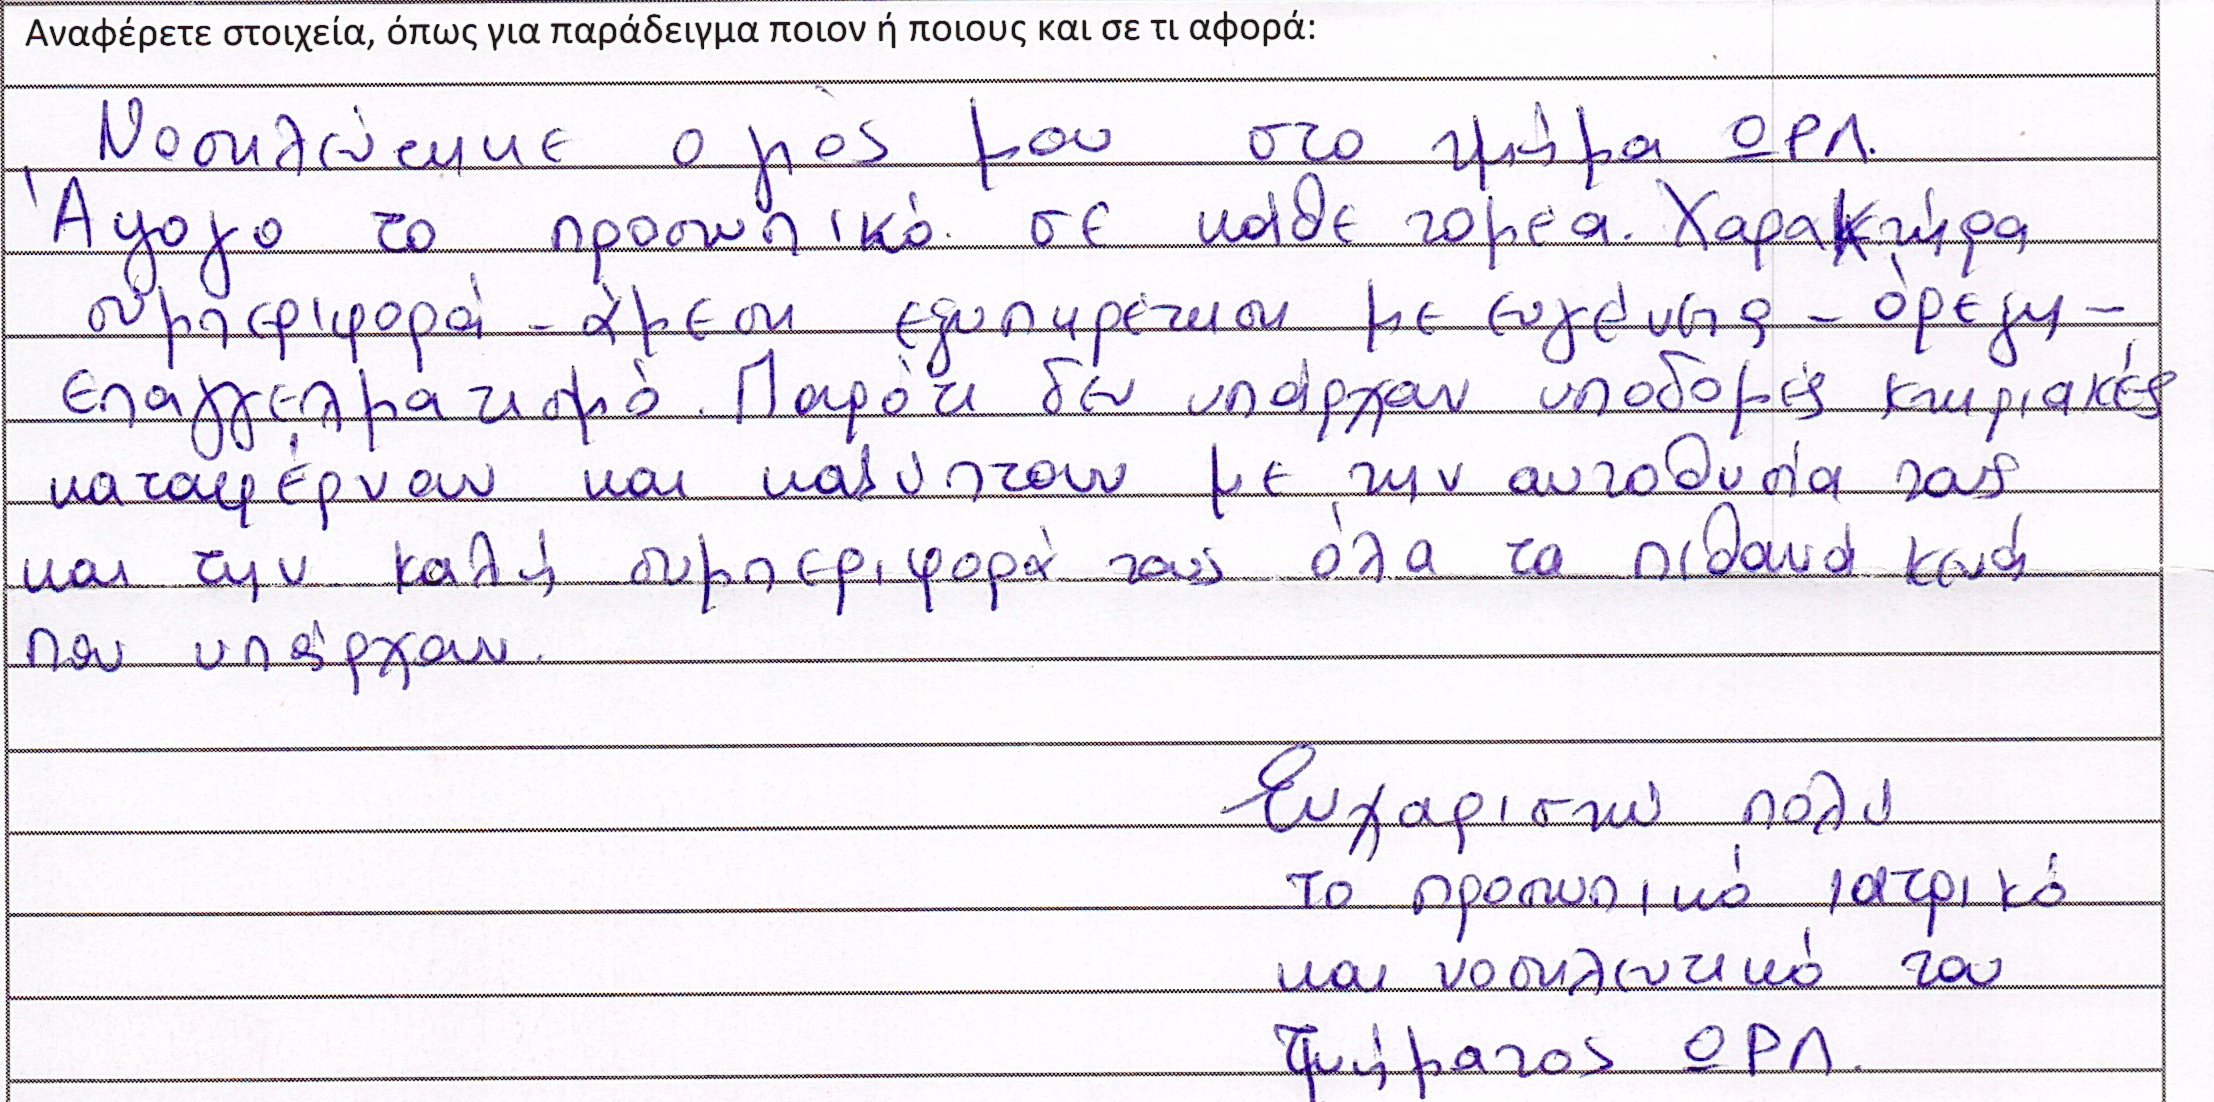 Αναφέρετε στοιχεία, όπως για παράδειγμα ποιον ή ποιους και σε τι αφορά:
Νοσηλεύτηκε ο γιός μου στο τμήμα ΩΡΛ.
Άψογο το προσωπικό σε κάθε τομέα. Χαρακτήρα
συμπεριφορά - άμεση εξυπηρέτηση με ευγένεια - όρεξη -
επαγγελματισμό. Παρότι δεν υπάρχουν υποδομές κτιριακές
καταφέρνουν και καλύπτουν με την αυτοθυσία τους
και την καλή συμπεριφορά τους όλα τα πιθανά κενά
που υπάρχουν.
Ευχαριστώ πολύ
το προσωπικό ιατρικό
και νοσηλευτικό του
Τμήματος ΩΡΛ.